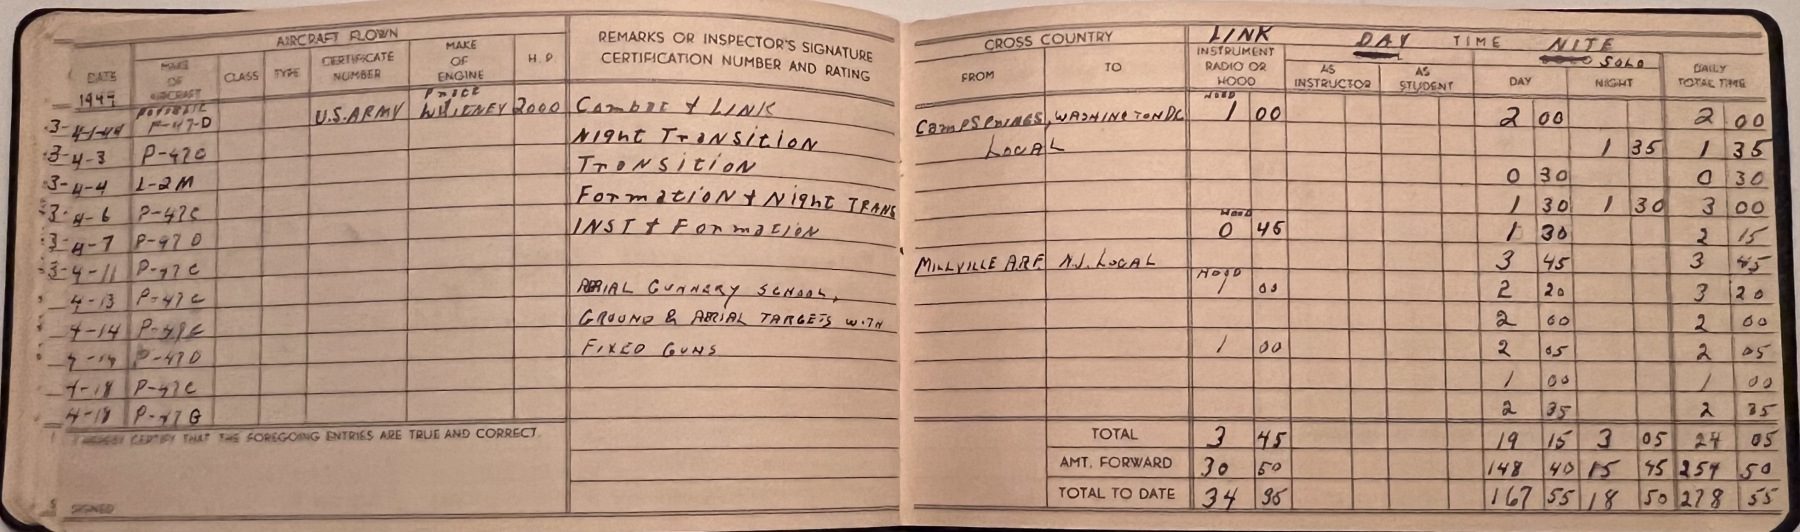 AIRCRAFT FLOWN REMARKS OR INSPECTOR'S SIGNATURE CERTIFICATION NUMBER AND RATING CROSS COUNTRY LINK DAY TIME NITE
DATE MAKE OF AIRCRAFT CLASS TYPE CERTIFICATE NUMBER MAKE OF ENGINE H.P. FROM TO INSTRUMENT RADIO OR HOOD AS INSTRUCTOR AS STUDENT DAY SOLO NIGHT DAILY TOTAL TIME
194
3-4-1-44 P-47-D U.S.ARMY WHITNEY 2000 Combat & LINK CAMP SPRINGS, WASHINGTON DC HOOD 1 00 2 00 2 00
3-4-3 P-47C Night TranSition LOCAL 1 35 1 35
3-4-4 L-2M TranSition 0 30 0 30
3-4-6 P-47C Formation & Night TRANS 1 30 1 30 3 00
3-4-7 P-47D INST & Formation HOOD 0 45 1 30 2 15
3-4-11 P-47C MILLVILLE N.J. LOCAL 3 45 3 45
4-13 P-47C AERIAL GUNNERY SCHOOL, HOOD 1 00 2 20 3 20
4-14 P-47C GROUND & AERIAL TARGETS WITH 2 00 2 00
P-47D FIXED GUNS 1 00 2 05 2 05
4-18 P-47C 1 00 1 00
4-18 P-47G 2 35 2 35
I HEREBY CERTIFY THAT THE FOREGOING ENTRIES ARE TRUE AND CORRECT. TOTAL 3 45 19 15 3 05 24 05
AMT. FORWARD 30 50 148 40 15 45 254 50
SIGNED TOTAL TO DATE 34 35 167 55 18 50 278 55